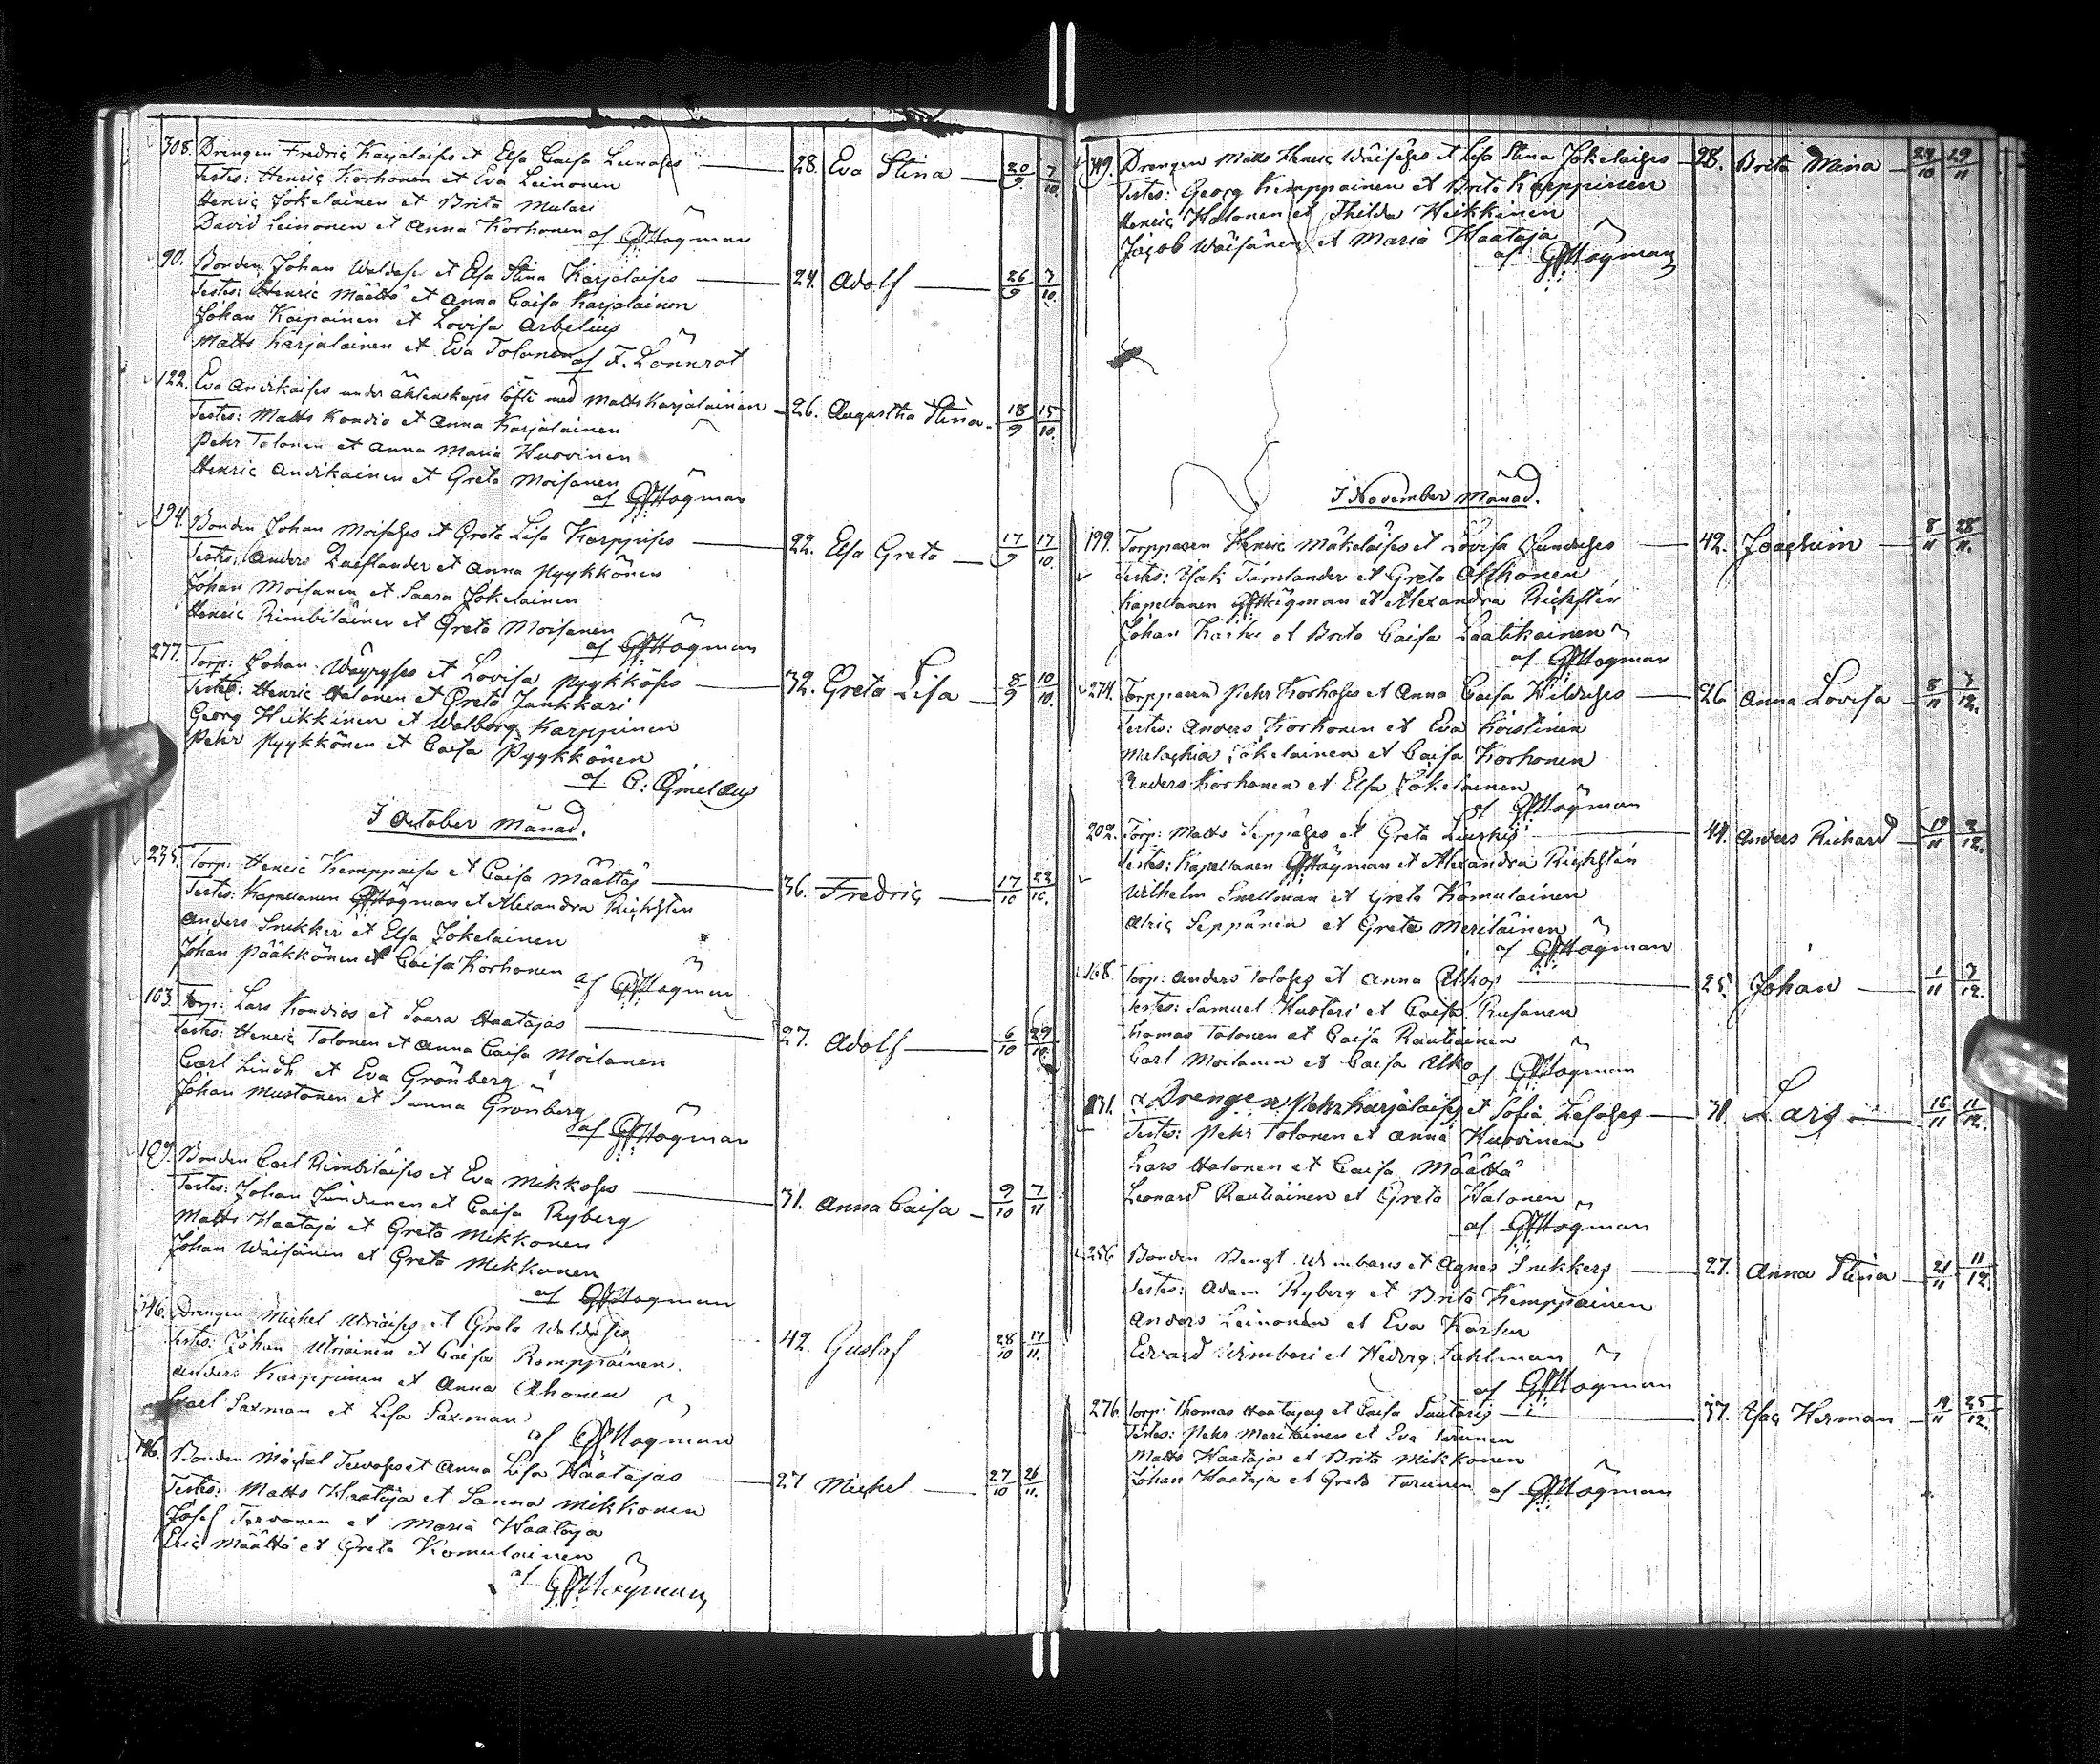 308. Drengen Fredric Karjalaises et Elsa Caisa Leinoses — 28. Eva Stina — 20/9 7/10.
Testes: Henric Korhonen et Eva Leinonen
Henric Jokelainen et Brita Mulari
David Leinonen et Anna Korhonen af GFHögman
90. Bonden Johan Waldases et Elsa Stina Karjalaises — 24. Adolf — 26/9 7/10.
Testes: Henric Määttä et Anna Caisa Karjalainen
Johan Kaipainen et Lovisa Arbelius
Matts Karjalainen et Eva Tolonen af F. Lönnrot
122. Eva Anvikaises under äktenskaps löfte med Matts Karjalainen — 26. Augustha Stina. 18/9 15/10.
Testes: Matts Kovdio et Anna Karjalainen
Pehr Tolonen et Anna Maria Huovinen
Henric Anvikainen et Greta Moisanen
af GFHögman
194. Bonden Johan Moisases et Greta Lisa Karppises — 22. Elsa Greta — 17/9 17/10.
Testes: Anders et Anna Pyykkönen
Johan Moisanen et Saara Jokelainen
Henric Rimbiläinen et Greta Moisanen
af GFHögman
277. Torp: Johan Wäyryses et Lovisa Pyykköses — 32. Greta Lisa — 8/9 10/10.
Testes: Henric Halonen et Greta Junkkari
Georg Heikkinen et Walborg Karppinen
Pehr Pyykkönen et Caisa Pyykkönen
af C: Gmelaus
I October Månad.
Torp: Henric Kemppaises et Caisa Määttäs — 36. Fredric — 17/10
Testes: Kapellanen GFHögman et Alexandra Richstén
Anders Snikker et Elsa Jokelainen
Johan Pääkkönen et Caisa Korhonen af GFHögman
103. Torp: Lars Kovdios et Saara Haatajas — 27. Adolf — 6/10 29/10.
Testes: Henric Tolonen et Anna Caisa Moilanen
Carl Lindh et Eva Grönberg
Johan Mustonen et Sanna Grönberg
af GFHögman
109. Bonden Carl Rimbiläises et Eva Mikkoses — 31. Anna Caisa — 9/10 7/11
Testes: Johan Jundunen et Caisa Ryberg
Matts Haataja et Greta Mikkonen
Johan Wäisänen et Greta Mikkonen
af GFHögman
Drengen Michel Utriaises et Greta Waldases 42. Gustaf 28/10 17/11.
Testes: Johan Utriainen et Caisa Romppainen.
Anders Karppinen et Anna Ahonen
Carl Saxman et Lisa Saxman
af GFHögman
Bonden Michel Tervoses et Anna Lisa Haatajas 27 Michel — 27/10 26/11.
Testes: Matts Haataja et Sanna Mikkonen
Josef Tervonen et Maria Haataja
Eric Määttä et Greta Komulainen
af GFHögman
Drengen Matts Henric Wäisäses et Lisa Stina Jokelaises — 28. Brita Mina — 24/10 29/11
Testes: Georg Kemppainen et Brita Karppinen
Henric Halonen et Thilda Heikkinen
Jacob Wäisänen et Maria Haataja
af GFHögman
I November Månad.
199. Torpparen Henric Mäkeläises et Lovisa Junduses — 42. Joachim — 8/11 28/11.
Testes: Isak Timlander et Greta Ahkonen
Kapellanen GFHögman et Alexandra Richstén
Johan Karhu et Brita Caisa Laatikainen
af GFHögman
274. Torpparen Pehr Korhoses et Anna Caisa Hilduses — 26 Anna Lovisa — 8/11 7/12.
Testes: Anders Korhonen et Eva Koistinen
Malachia Jokelainen et Caisa Korhonen
Anders Korhonen et Elsa Jokelainen
af GFHögman
202. Torp: Matts Seppäses et Greta — 44. Anders Richard — 19/11 9/12.
Testes: Kapellanen GFHögman et Alexandra Richstén
Wilhelm Snellman et Greta Komulainen
Alric Seppänen et Greta Meriläinen
af GFHögman
168. Torp: Anders Toloses et Anna Alkos — 25. Johan — 1/11 7/12.
Testes: Samuel Huotari et Caisa Rusanen
Thomas Tolonen et Caisa Rautiainen
Carl Moilanen et Caisa Alko
af GFHögman
Drengen Pehr Karjalaises et Sofia — 31 Lars — 16/11 11/12.
Testes: Pehr Tolonen et Anna Huovinen
Lars Halonen et Caisa Määttä
Leonard Rautiainen et Greta Halonen
af GFHögman
256 Bonden Bengt Wimbaris et Agnes Snikkers — 27. Anna Stina — 21/11 11/12.
Testes: Adam Ryberg et Brita Kemppainen
Anders Leinonen et Eva Karsen
Edvard Wimbari et Hedvig Sahlman
af GFHögman
276 Torp: Thomas Haatajas et Caisa — 37. Isac Herman — 19/11 25/12.
Testes: Pehr Meriläinen et Eva Tarunen
Matts Haataja et Brita Mikkonen
Johan Haataja et Greta Tarunen af GFHögman